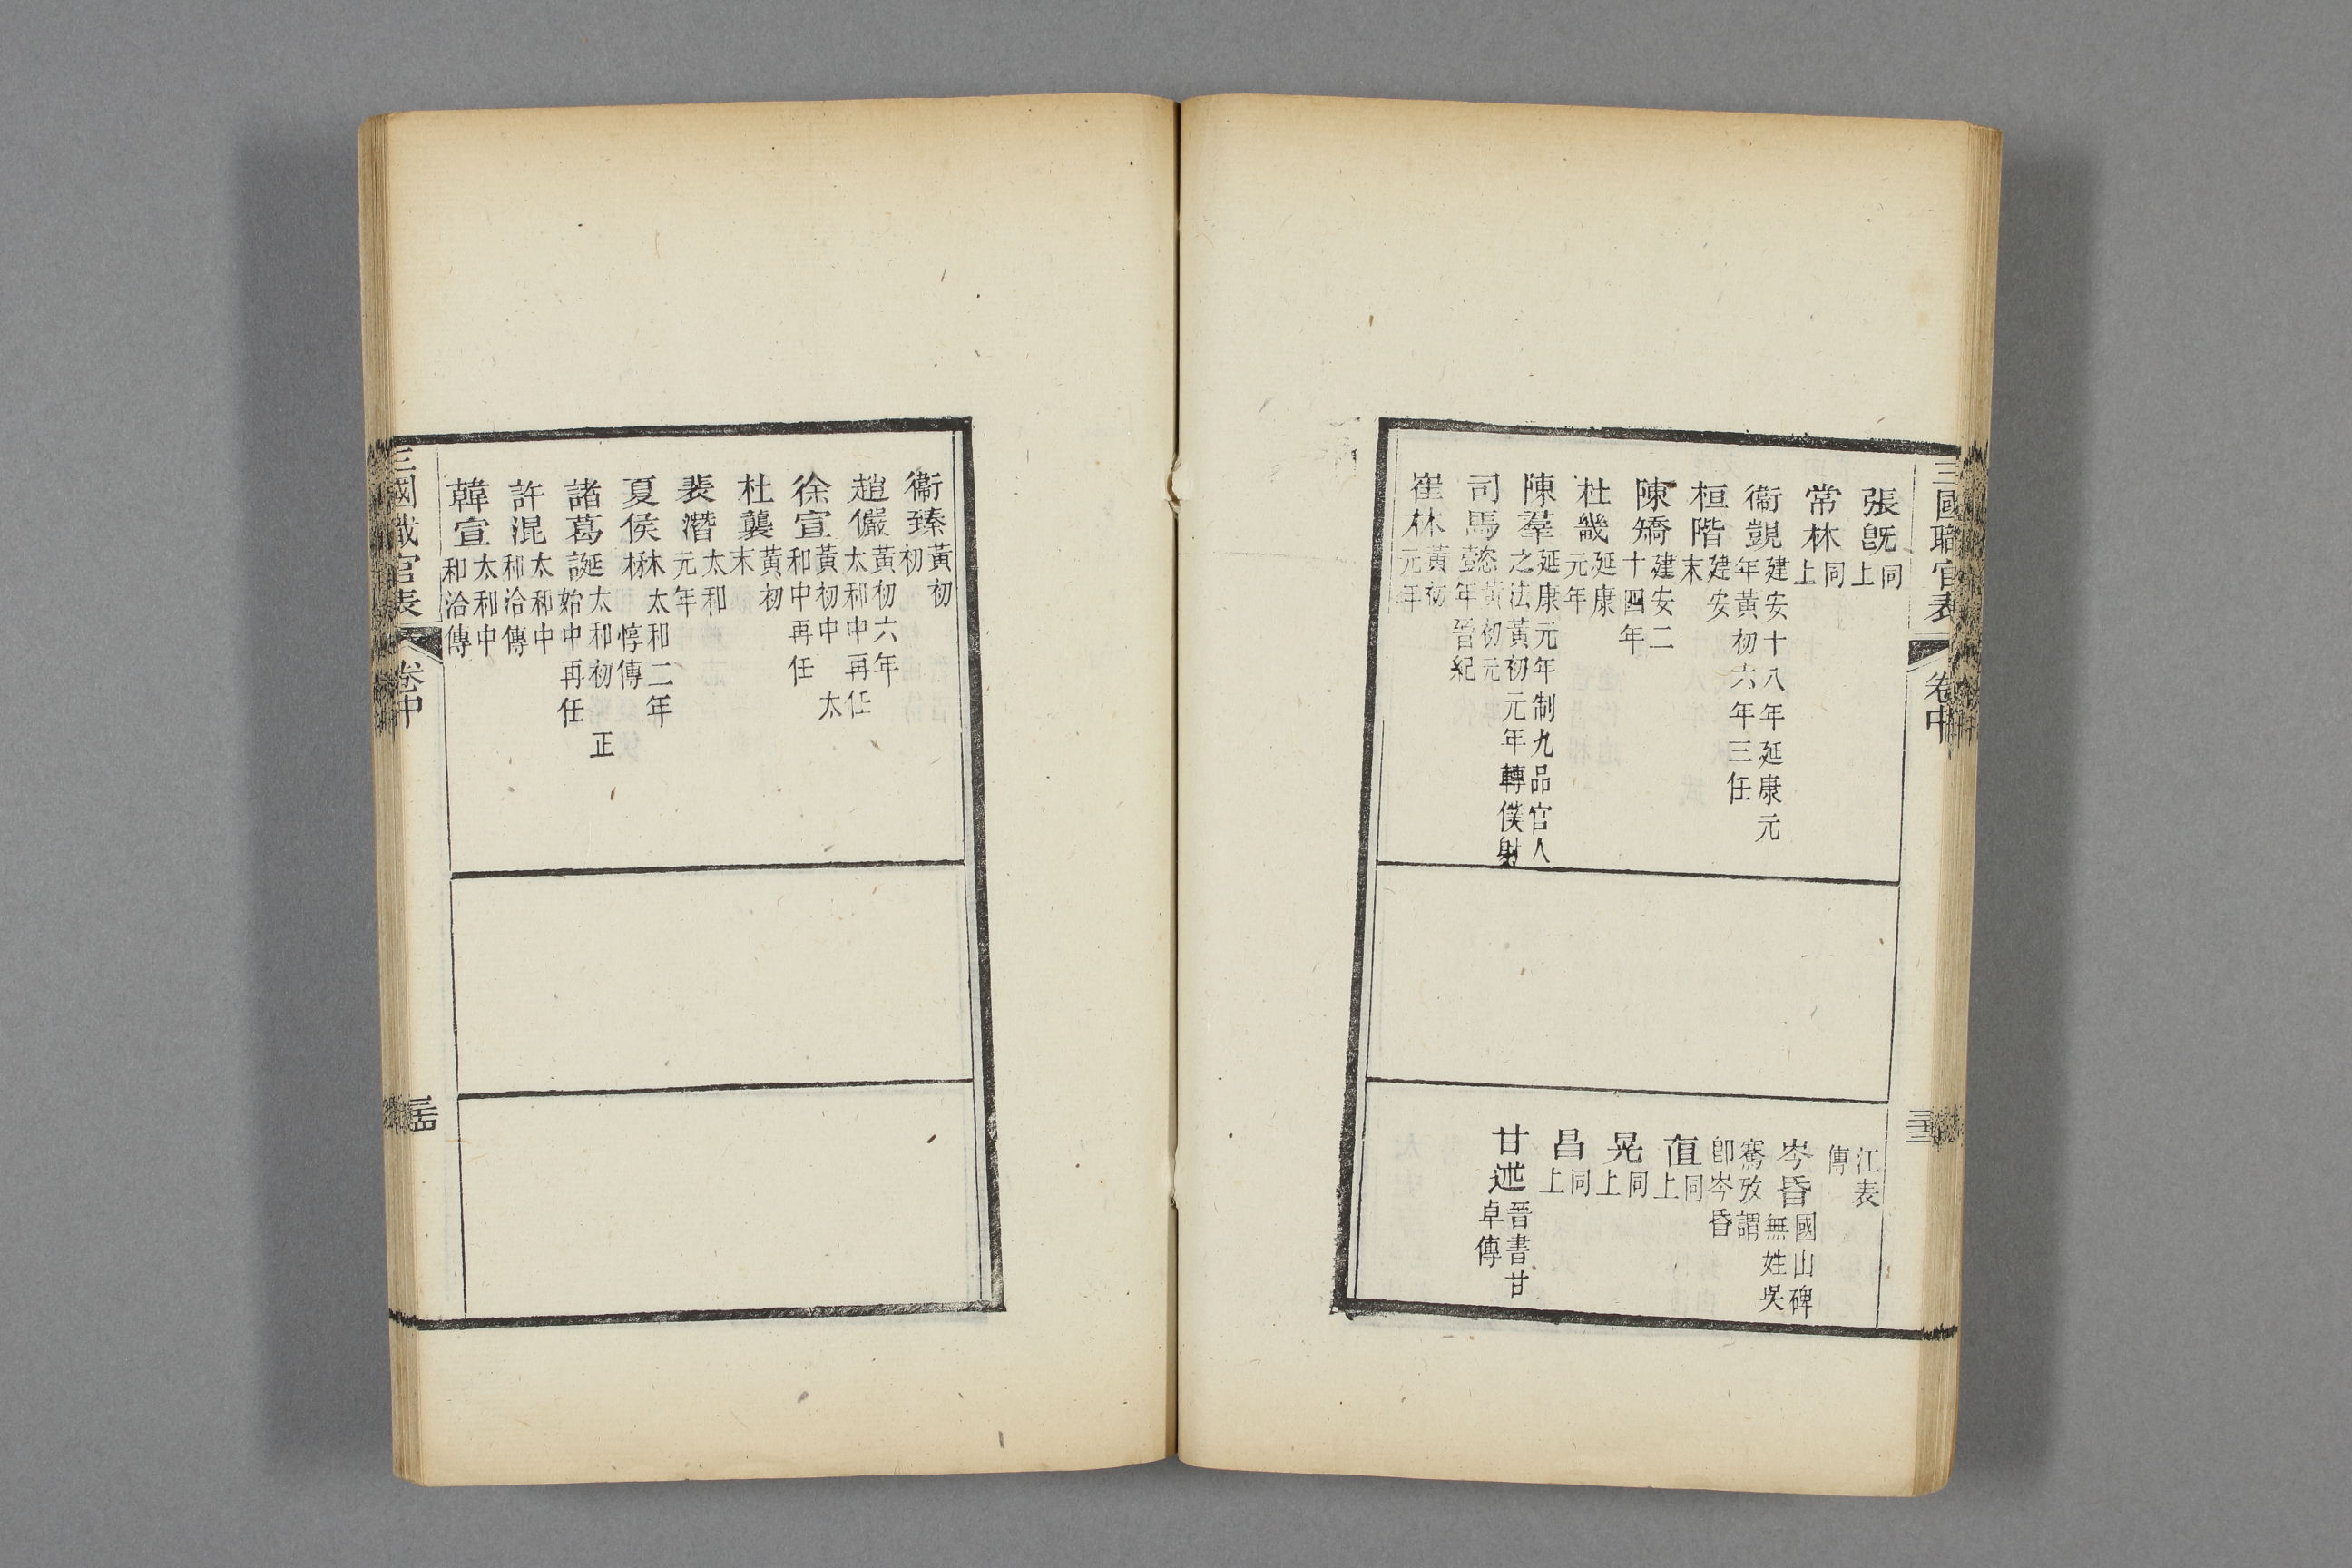 三國職官表
卷中
張旣同上
常林同上
衞覬建安十八年延康元年黃初六年三任
桓階建安末
陳矯建安二十四年
杜畿延康元年
陳羣延康元年制九品官人之法黃初元年轉僕射
司馬懿黃初元年晉紀
崔林黃初元年
江表傳
岑昏國山碑無姓吳騫攷謂卽岑昏
直同上
晃同上
昌同上
甘述晉書甘卓傳
衞臻黃初初
趙儼黃初六年太和中再任
徐宣黃初中太和中再任
杜襲黃初末
裴潛太和元年
夏侯楙太和二年惇傳
諸葛誕太和初正始中再任
許混太和中和洽傳
韓宣太和中和洽傳
三國職官表
卷中